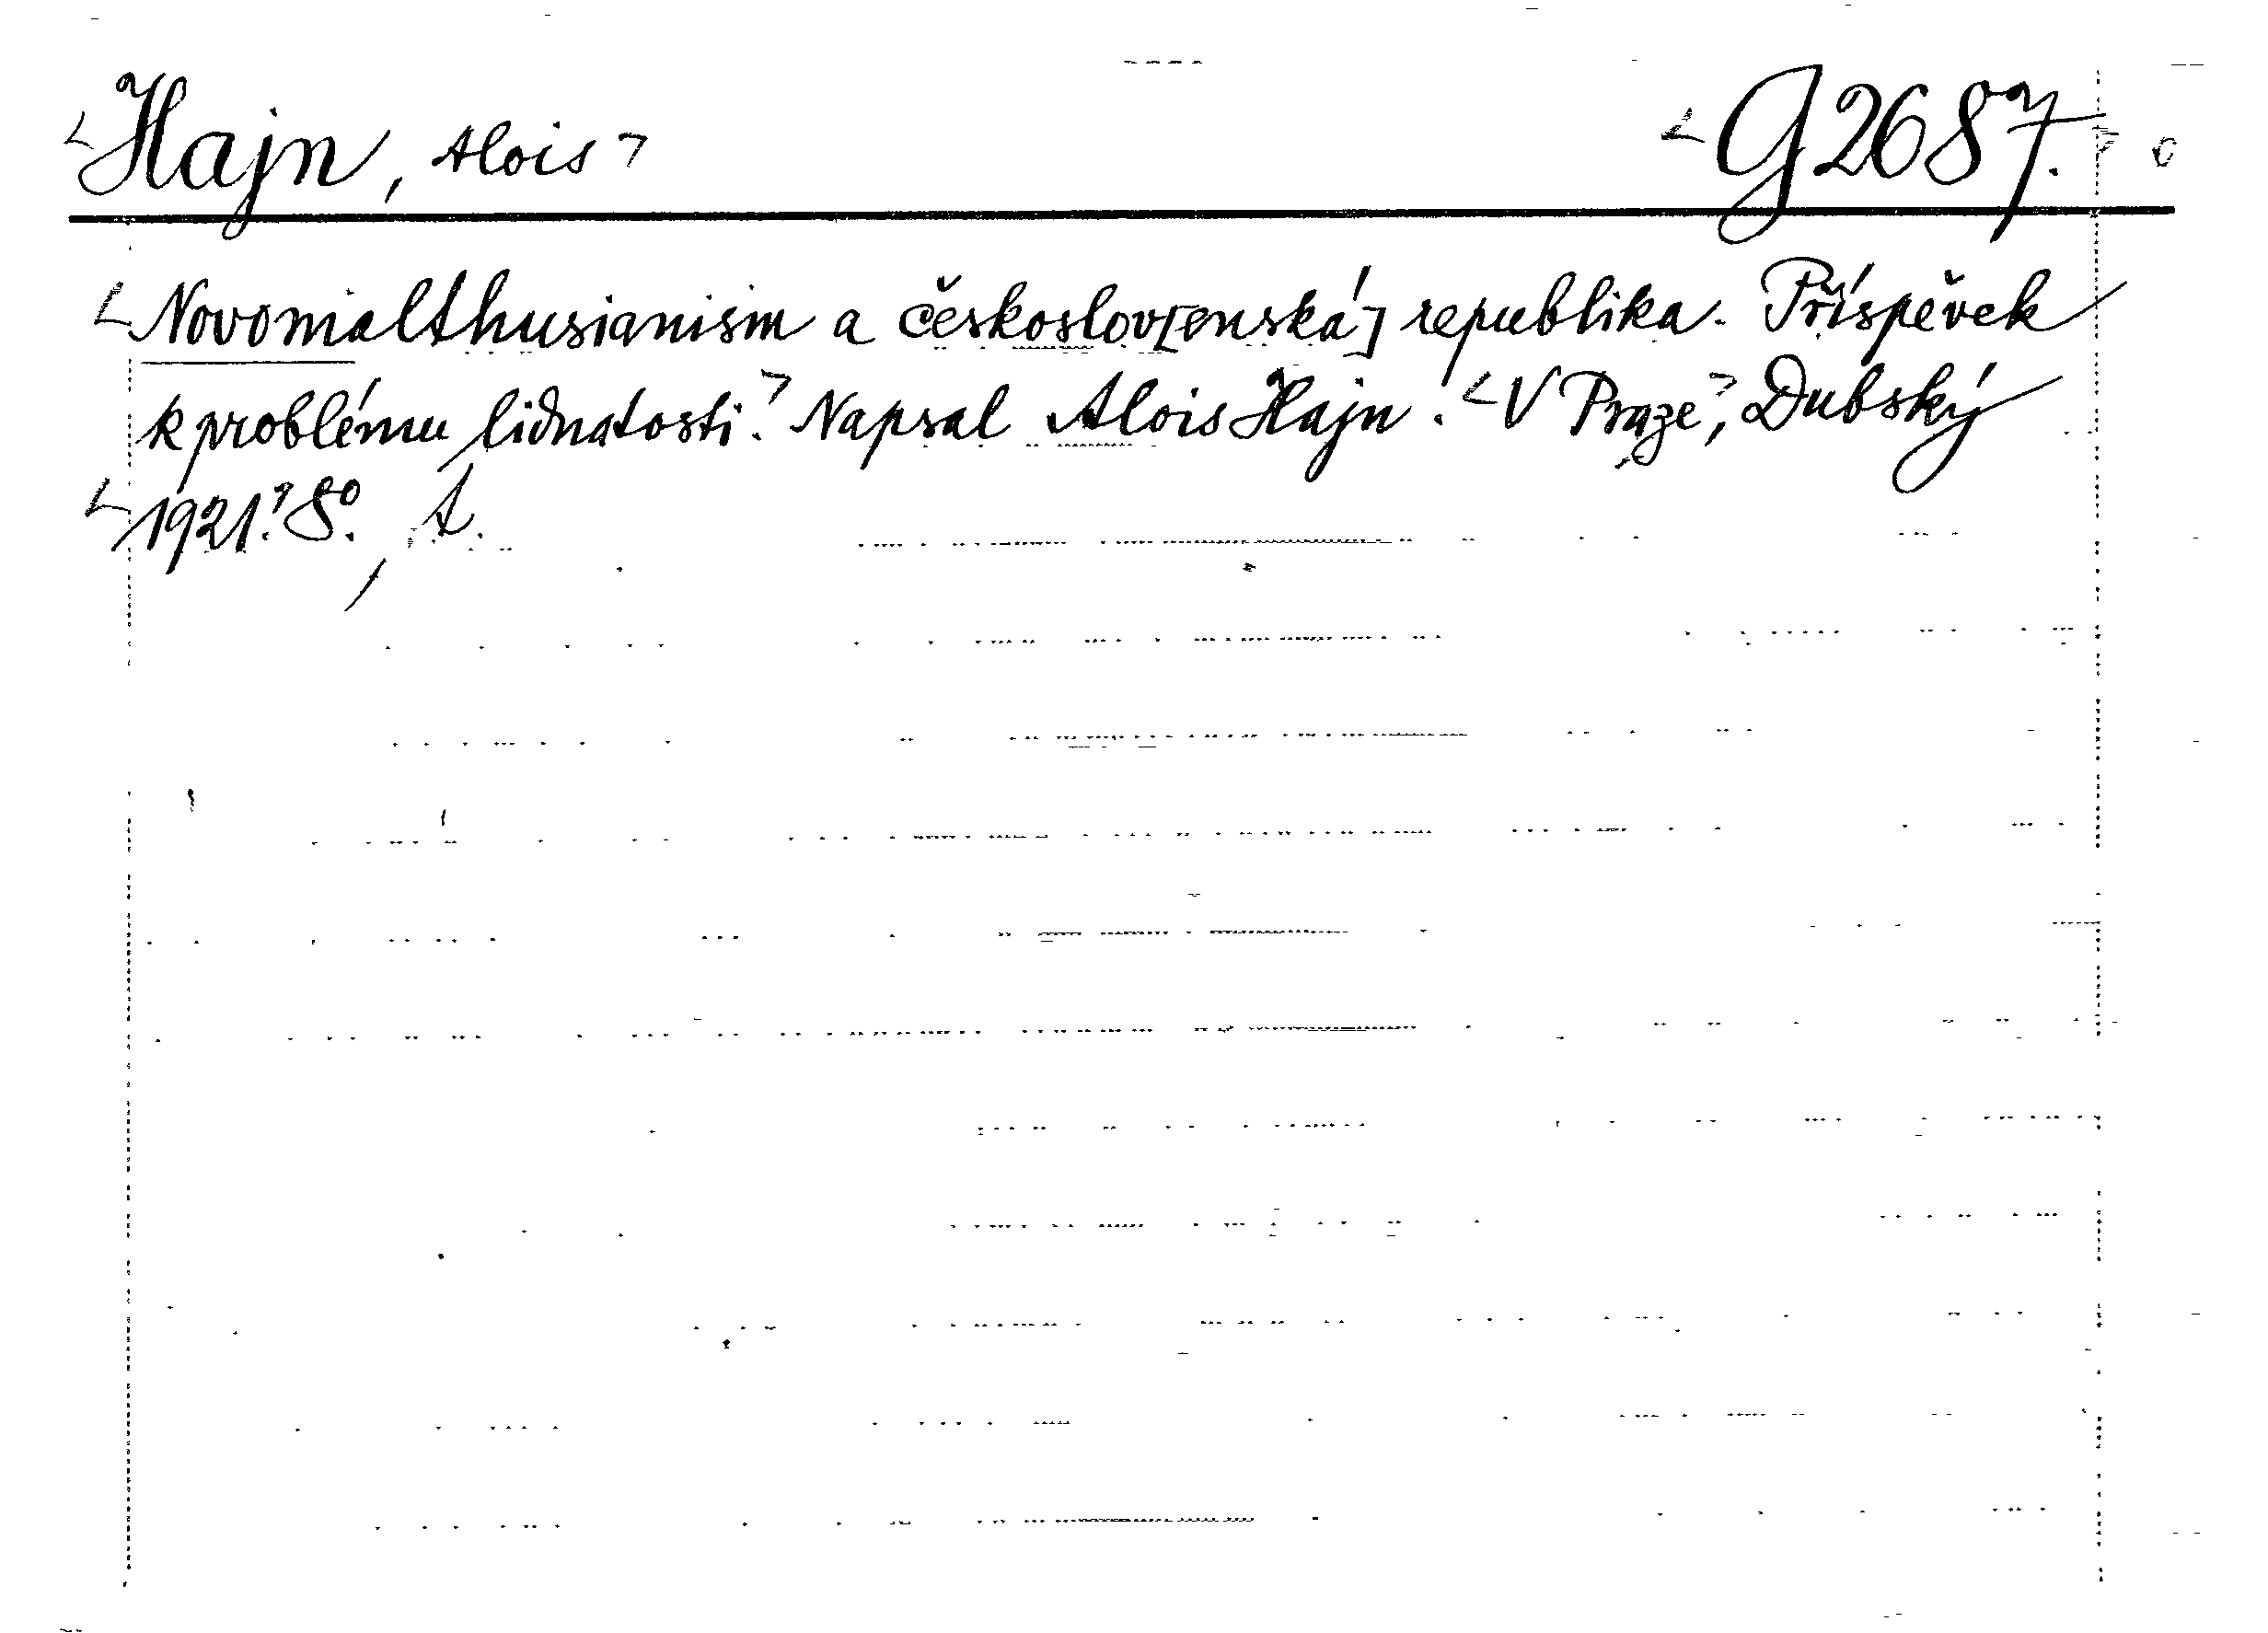 Hajn, Alois G 2687.
Novomalthusianism a českoslov[enská] republika. Příspěvek
k problému lidnatosti. Napsal Alois Hajn. V Praze, Dubský
1921. 8°. A.